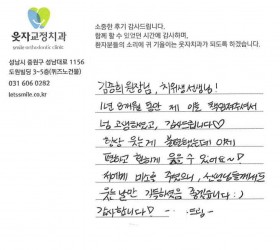 웃자교정치과
smile orthodontic clinic
성남시 중원구 성남대로 1156
도원빌딩 3~5층(위즈노건물)
031 606 0282
letssmile.co.kr
소중한 후기 감사드립니다.
함께 할 수 있었던 시간에 감사하며,
환자분들의 소리에 귀 기울이는 웃자치과가 되도록 하겠습니다.
김증희원장님, 치위생선생님!
1년 8개월 동안 제 이를 책임져주셔서
넘 고생하셨고, 감사드립니다♡
항상 웃는게 불편했는데 이제
편하고 환하게 웃을 수 있어요~?
저에게 미소를 주셨으니, 선생님들께서도
웃는 날만 가득하셨음 좋겠습니다 :)
감사합니다♡ - 드림 -